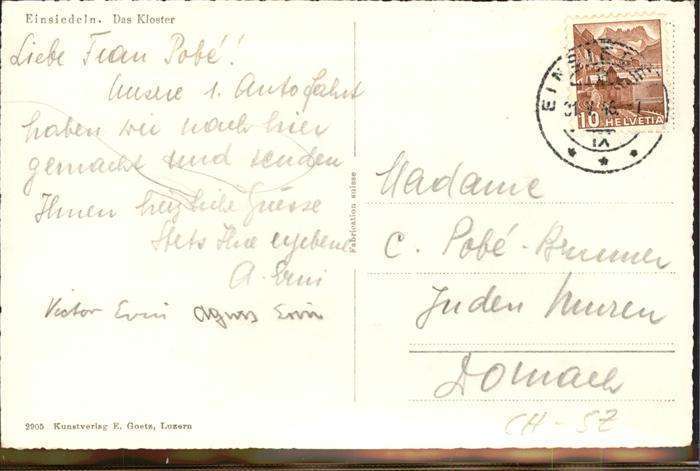 Einsiedeln. Das Kloster
Liebe Frau Pobé!
Unsere 1. Autofahrt
haben wir nach hier
gemacht und senden
Ihnen herzliche Grüsse
Stets Ihre ergebene
A. Erni
Victor Erni Agnes Erni
2905 Kunstverlag E. Goetz, Luzern
Fabrication suisse
EINSIEDELN
31. V. 46
IX
10 HELVETIA
Madame
C. Pobé-Brunner
In den Muren
Dornach
CH-SZ